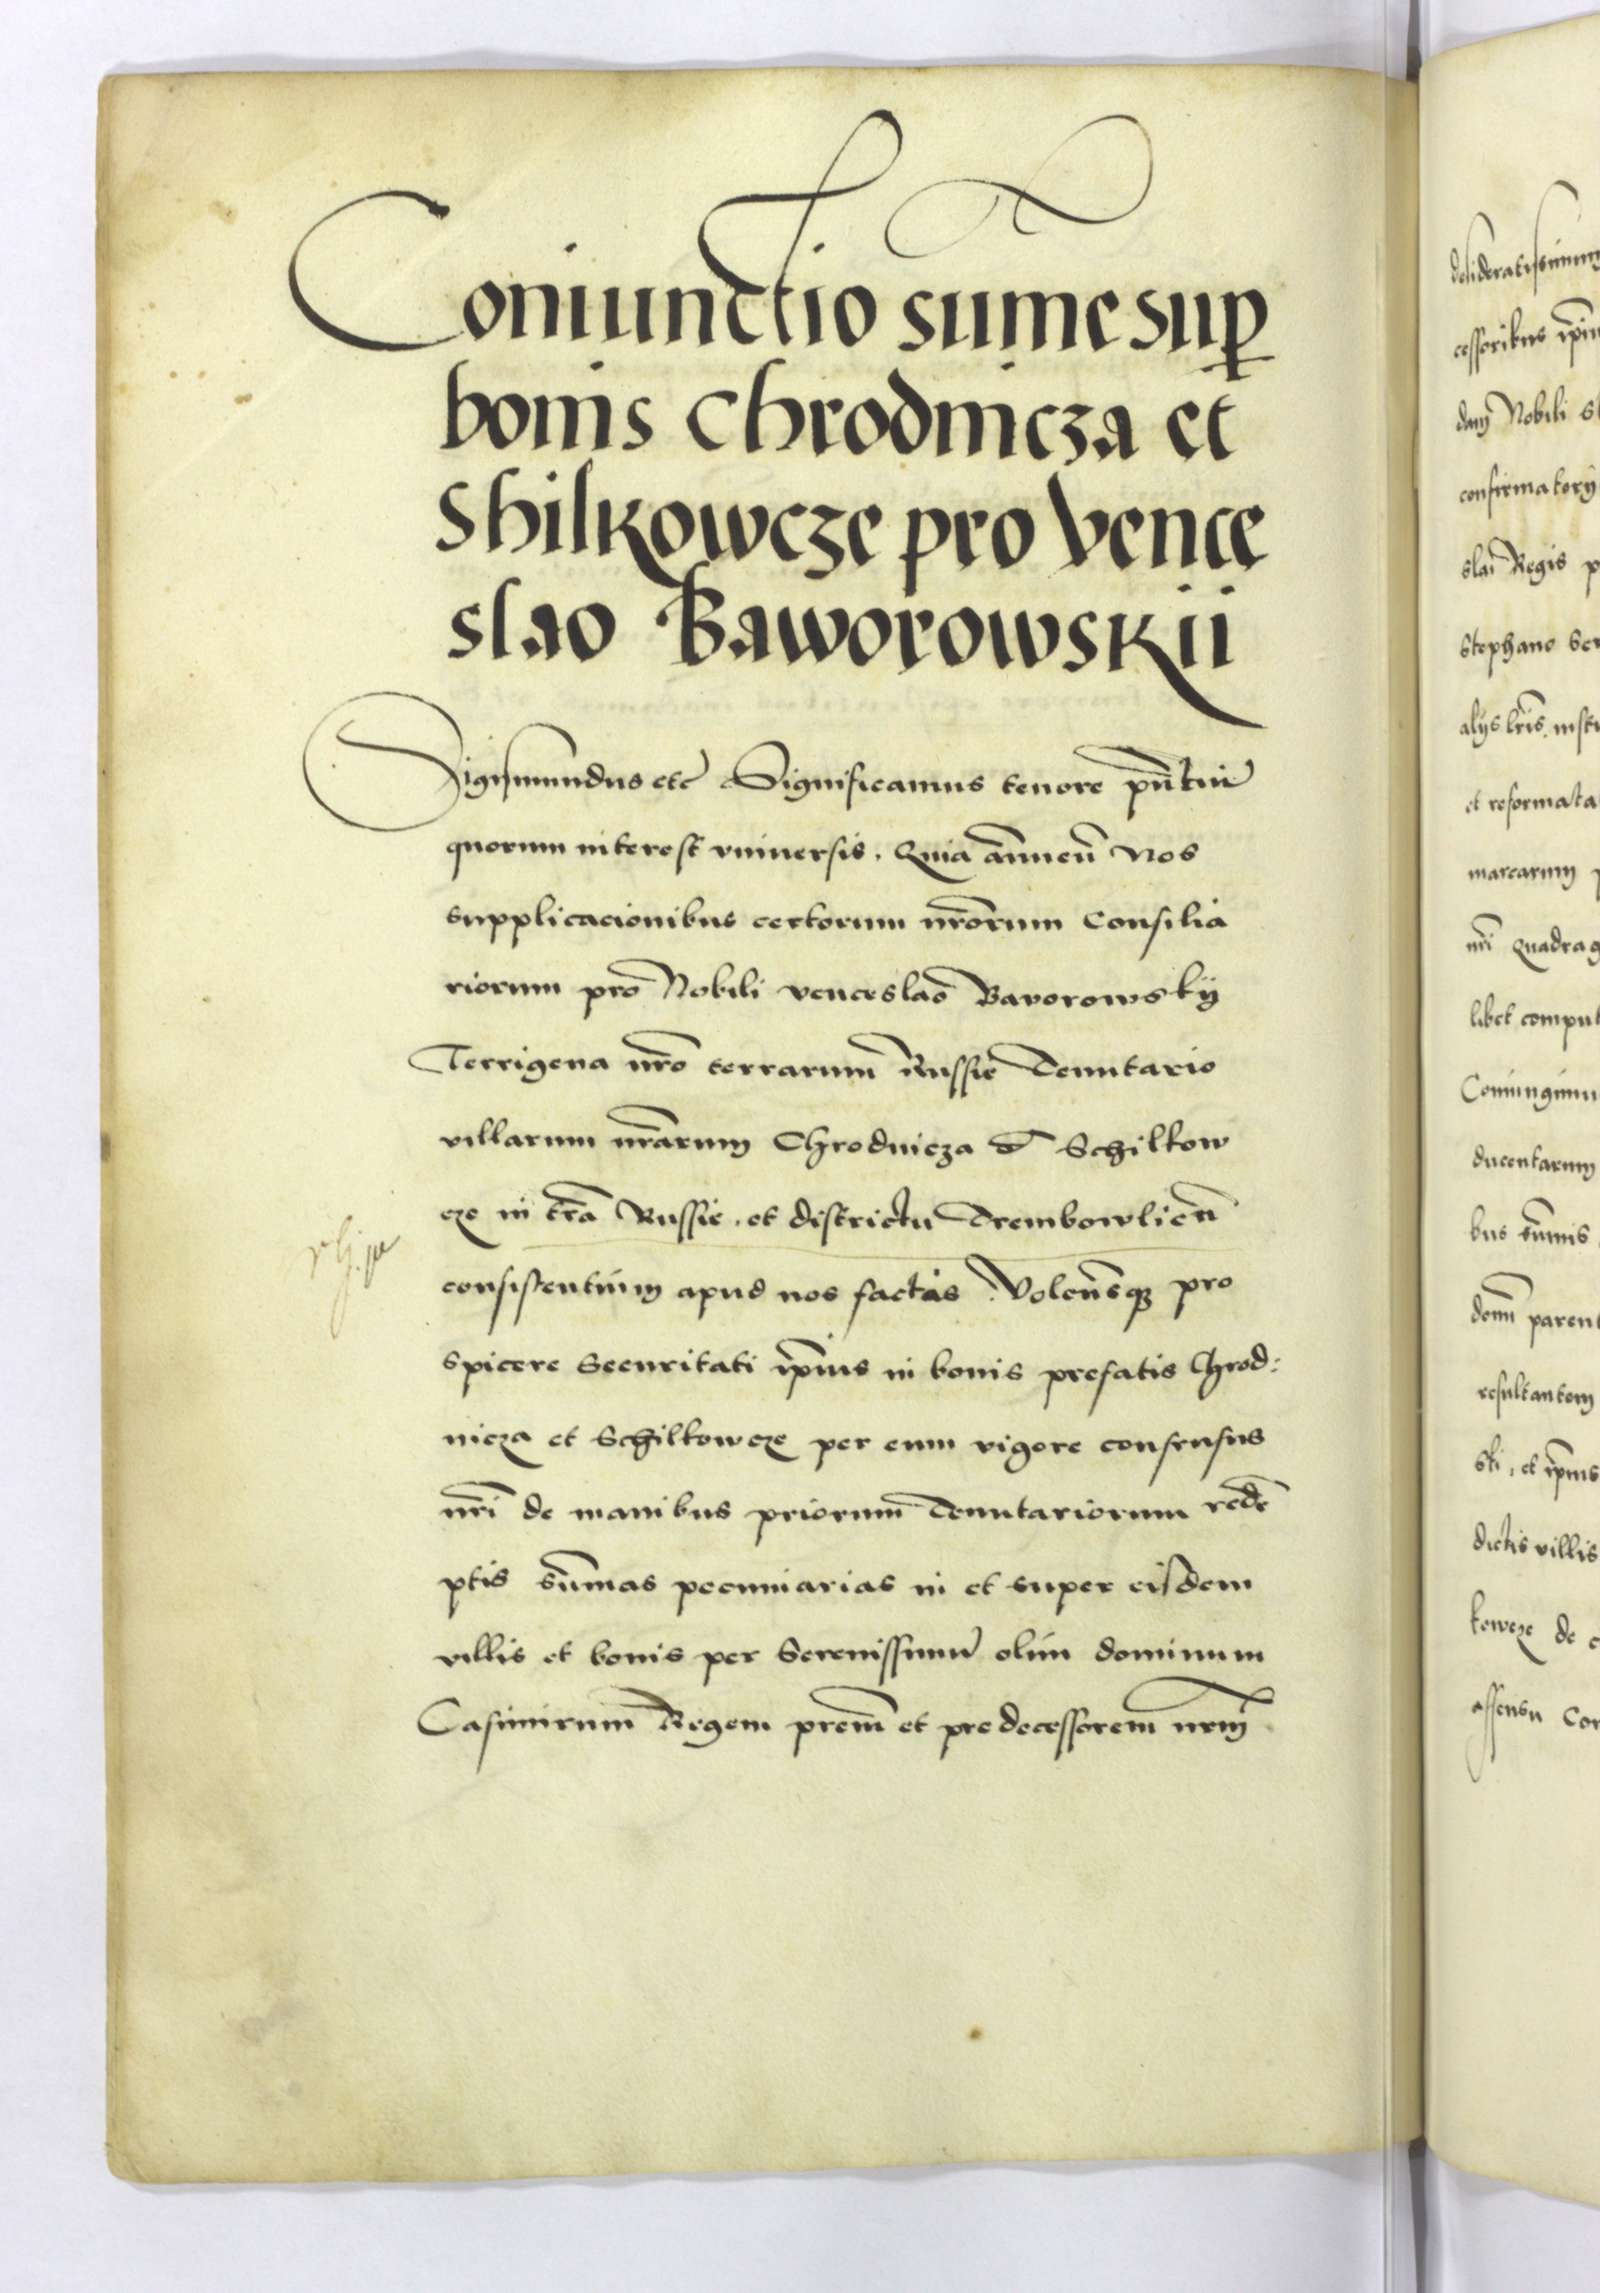 Coniunctio sume sup
bonis Chrodnicza et
Shilkowcze pro Vence
slao Baworowskii
Sigismundus etc Significamus tenore pñtiũ
quorum interest vniuersis. Quia annueñ Nos
supplicacionibus certorum nrõrum Consilia
riorum pro Nobili venceslao Bavorowskÿ
Terrigena nrõ terrarum Russie Tenutario
villarum nrãrum Chrodnicza et Schilkow
cze in trã Russie. et districtu Trembowlieñ
consistentium apud nos factis. Volensqȝ pro
spicere Securitati ip̃ius in bonis prefatis Chrod:
nicza et Schilkowcze per eum vigore consensus
nrĩ de manibus priorum Tenutariorum redẽ
ptis sum̃as pecuniarias in et super eisdem
villis et bonis per Serenissimũ olim dominum
Casimirum Regem prem̃ et predecessorem nrm̃
desideratissimum
cessoribus ip̃iu
dam Nobili S
confirmatorÿ
slai Regis p
Stephano Ser
alÿs lrĩs. inst
et reformata
marcarum
nrĩ Quadrag
libet comput
Coniungimu
ducentarum
bus sum̃is
parent
resultantem
ski, et ip̃ius
dictis villis
kowcze de c
assensu Con